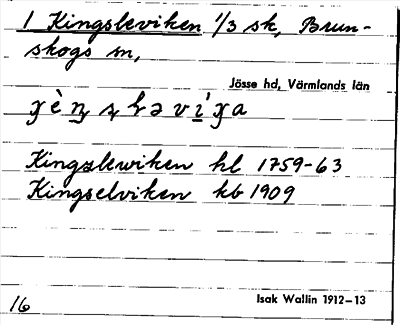 1 Kingsleviken 1/3 sk, Brun-
skogs sn,
Jösse hd, Värmlands län
Kingslewiken hl 1759-63
Kingselviken kb 1909
16
Isak Wallin 1912-13